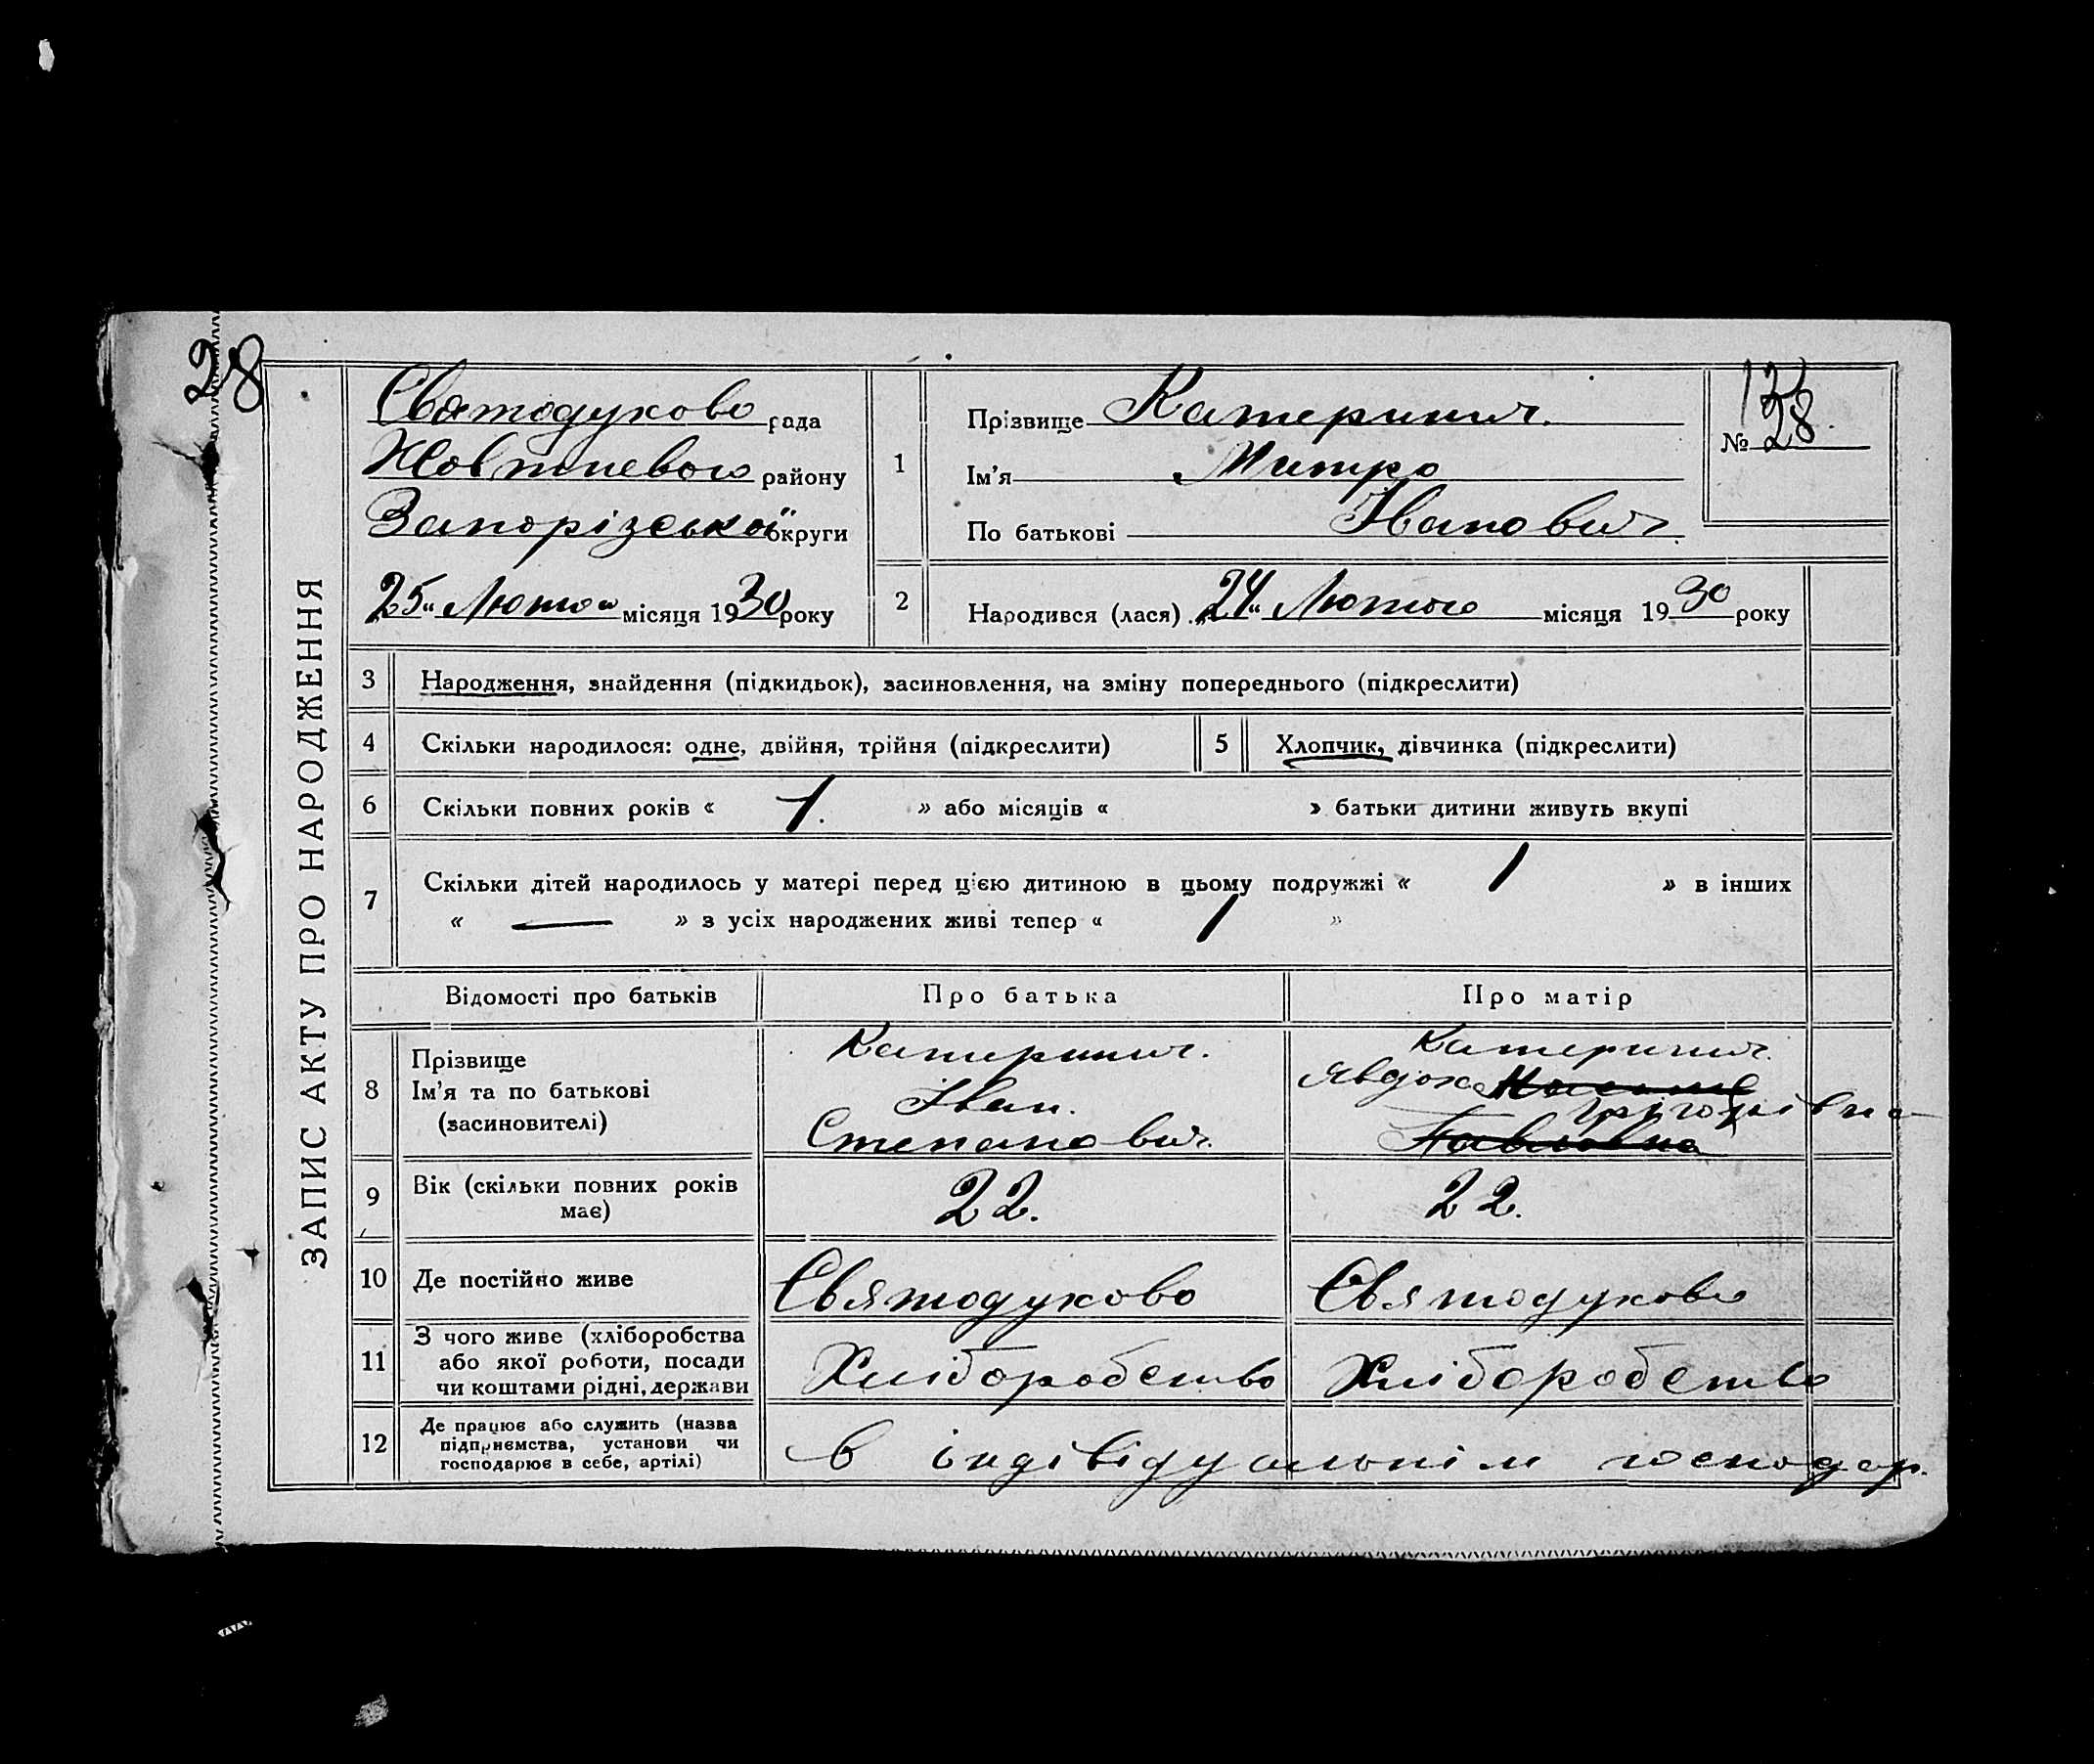 28
ЗАПИС АКТУ ПРО НАРОДЖЕННЯ
Святодухово рада
Жовтневого району
Запорізської округи
25 „ Лютого місяця 1930 року
1
Прізвище Катеринич.
Ім'я Митро
По батькові Іванович.
№ 28.
2
Народився (лася) „ 24 „ Лютого місяця 1930 року
3 Народження, знайдення (підкидьок), засиновлення, на зміну попереднього (підкреслити)
4 Скільки народилося: одне, двійня, трійня (підкреслити)
5 Хлопчик, дівчинка (підкреслити)
6 Скільки повних років « 1. » або місяців « » батьки дитини живуть вкупі
7 Скільки дітей народилось у матері перед цією дитиною в цьому подружжі « 1 » в інших
« — » з усіх народжених живі тепер « 1 »
Відомості про батьків
Про батька
Про матір
8
Прізвище
Ім'я та по батькові
(засиновителі)
Катеринич.
Іван.
Степанович.
Катеринич.
Явдоха
Григорівна
Павловна
9 Вік (скільки повних років
має)
22.
22.
10 Де постійно живе
Святодухово
Святодухово
11
З чого живе (хліборобства
або якої роботи, посади
чи коштами рідні, держави
Хліборобство
Хліборобство
12
Де працює або служить (назва
підприємства, установи чи
господарює в себе, артілі)
в індівідуальнім господар.